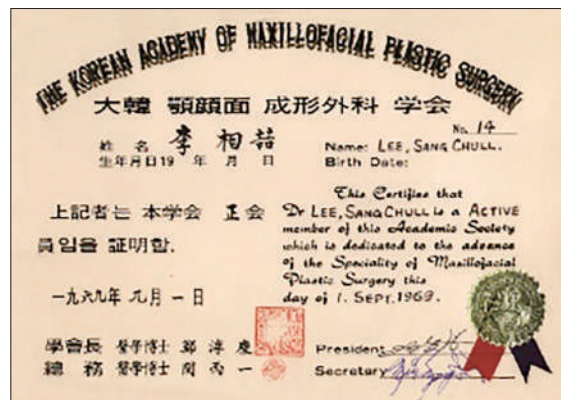 THE KOREAN ACADEMY OF MAXILLOFACIAL PLASTIC SURGERY
大韓 顎顔面 成形外科 学会
No. 14
姓名 李相喆
生年月日19 年 月 日
Name: LEE, SANG CHULL.
Birth Date:
上記者는 本学会 正会
員임을 証明함.
一九六九年 九月 一日
This Certifies that
Dr LEE, SANG CHULL is a ACTIVE
member of this Academic Society
which is dedicated to the advance
of the Speciality of Maxillofacial
Plastic Surgery this
day of 1. SEPT. 1969.
學會長 醫學博士 鄭淳慶
總務 醫學博士 閔丙一
President
Secretary